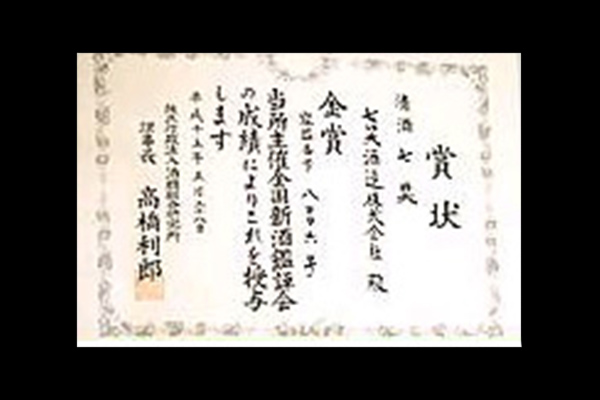 賞状
清酒 七笑
七笑酒造株式会社 殿
金賞
八百六号
当所主催全国新酒鑑評会
の成績によりこれを授与
します
平成十五年五月二八日
独立行政法人酒類総合研究所
理事長 高橋利郎